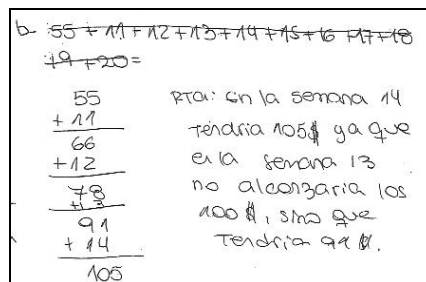 b- 55 + 11 + 12 + 13 + 14 + 15 + 16 + 17 + 18
19 + 20 =
55
+ 11
66
+ 12
78
+ 13
91
+ 14
105
RTa: En la semana 14
tendria 105$ ya que
en la semana 13
no alconzaria los
100 $, sino que
Tendria 91 $.